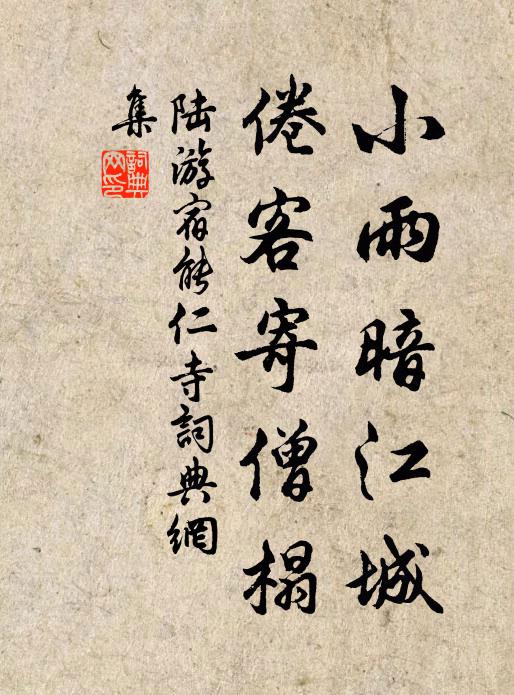 小雨暗江城
倦客寄僧榻
陆游宿能仁寺詞典網
集
詞典網印